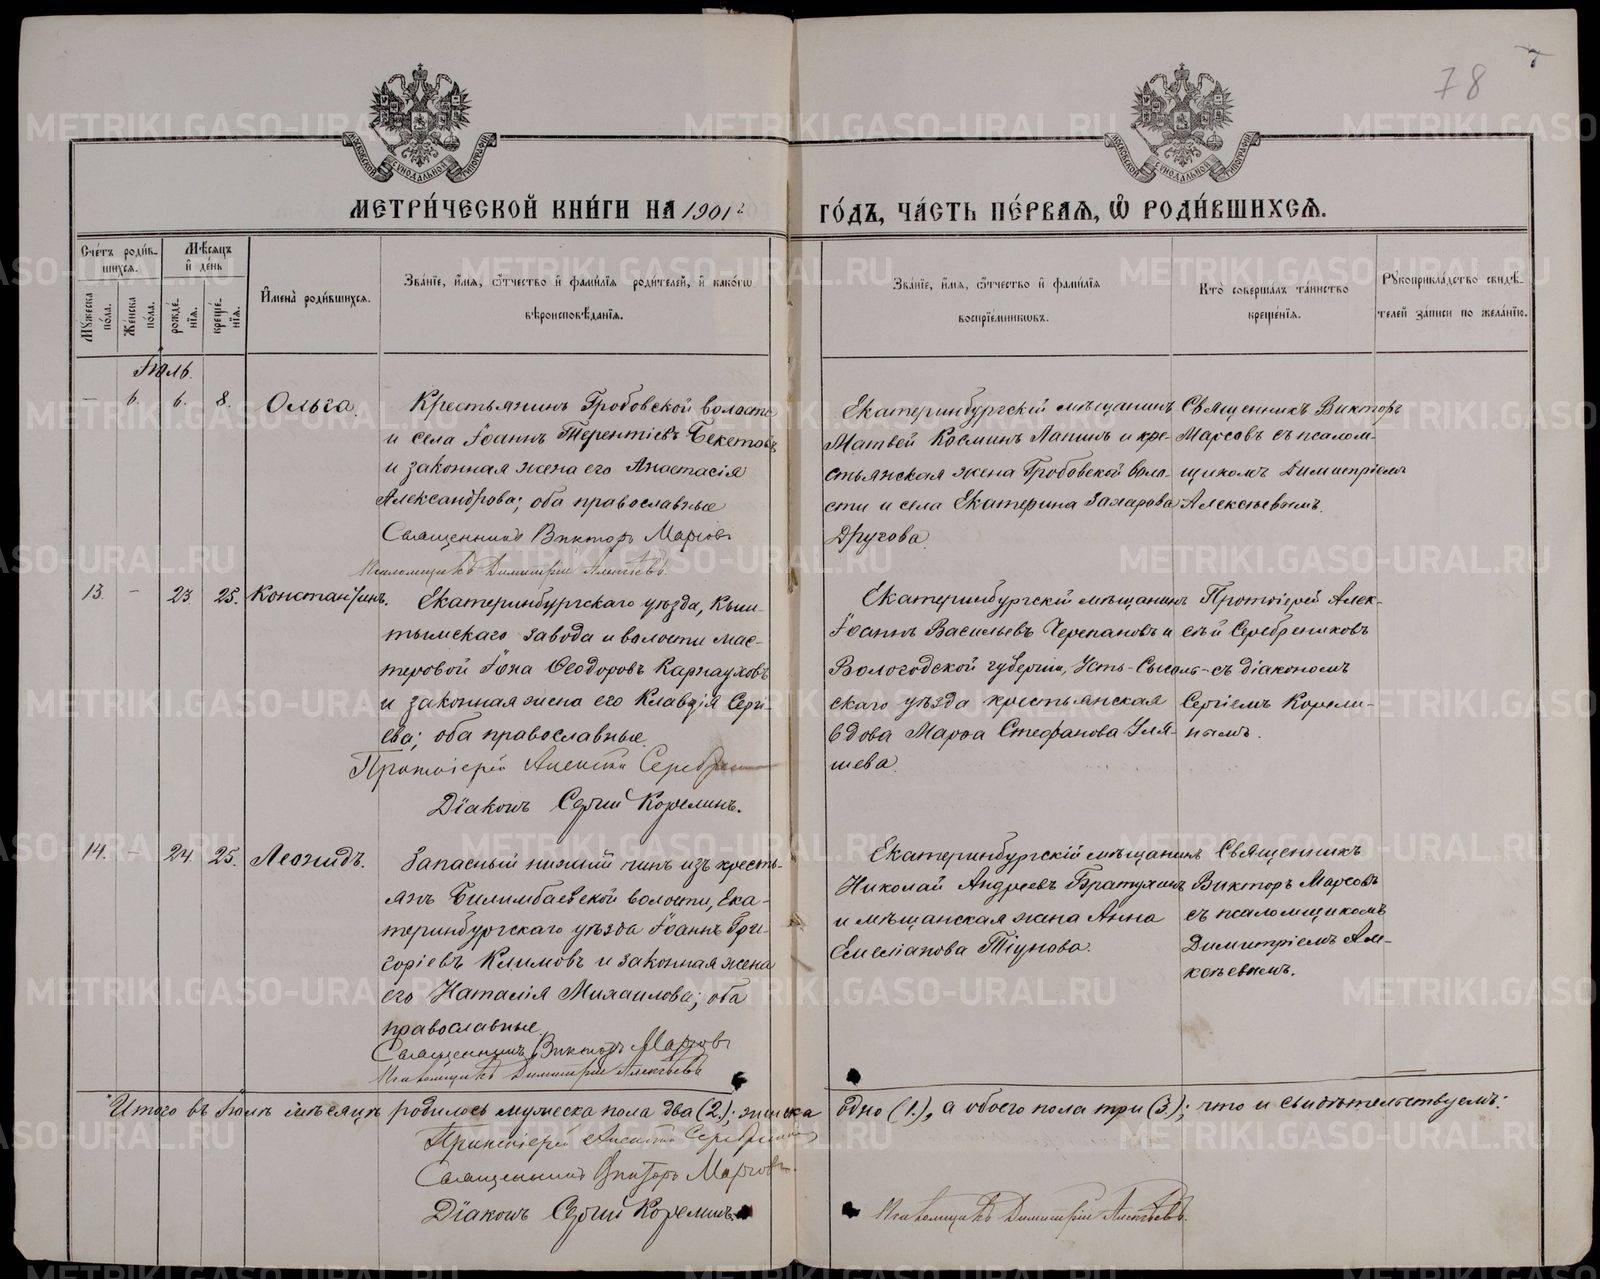 78
7
МЕТРИ́ЧЕСКОЙ КНИ́ГИ НА 1901 г
ГО́ДЪ, ЧА́СТЬ ПЕ́РВАЯ, Ѿ РОДИ́ВШИХСЯ.
Сче́тъ роди́в-
шихся.
Мѣ́сяцъ
и҆ де́нь
Му́жеска
по́ла.
Же́нска
по́ла.
рожде́-
нїя.
креще́-
нїя.
И҆мена̀ роди́вшихся.
Зва́нїе, и҆́мя, ѻ҆́тчество и҆ фами́лїя роди́телей, и҆ како́гѡ
вѣроисповѣ́данїя.
Зва́нїе, и҆́мя, ѻ҆́тчество и҆ фами́лїя
воспрїе́мникѡвъ.
Кто̀ соверша́лъ та́инство
креще́нїя.
Рукоприкла́дство свидѣ́-
телей за́писи по жела́нїю.
Іюль.
— 6. 6. 8. Ольга.
Крестьянинъ Гробовской волости
и села Іоаннъ Терентіевъ Бекетовъ
и законная жена его Анастасія
Александрова; оба православные
Священникъ Викторъ Марсов
Псаломщикъ Димитрій Алексѣевъ.
Екатеринбургскій мѣщанинъ
Матвей Косминъ Лапинъ и кре-
стьянская жена Гробовской воло-
сти и села Екатерина Захарова
Другова.
Священникъ Викторъ
Марсовъ съ псалом-
щикомъ Димитріемъ
Алексѣевымъ.
13. — 23. 25. Константинъ.
Екатеринбургскаго уѣзда, Кыш-
тымскаго завода и волости мас-
теровой Іона Ѳеодоровъ Карнауховъ
и законная жена его Клавдія Сергі-
ева; оба православные.
Протоіерей Алексій Серебрен
Діаконъ Сергій Корелинъ.
Екатеринбургскій мѣщанинъ
Іоаннъ Васильевъ Черепановъ и
Вологодской губерніи, Усть-Сысоль-
скаго уѣзда крестьянская
вдова Марѳа Стефанова Уля-
шева.
Протоіерей Алек-
сѣй Серебрениковъ
съ діакономъ
Сергіемъ Корели-
нымъ.
14. — 24. 25. Леонидъ.
Запасный нижній чинъ изъ кресть-
янъ Билимбаевской волости, Ека-
теринбургскаго уѣзда Іоаннъ Гри-
горіевъ Климовъ и законная жена
его Наталія Михаилова; оба
православные.
Священникъ Викторъ Марсовъ
Псаломщикъ Димитрій Алексѣевъ
Екатеринбургскій мѣщанинъ
Николай Андреевъ Братухинъ
и мѣщанская жена Анна
Емеліанова Тіунова.
Священникъ
Викторъ Марсовъ
съ псаломщикомъ
Димитріемъ Але-
ксѣевымъ.
Итого въ Іюлѣ мѣсяцѣ родилось мужеска пола два (2.); женска одно (1.), а обоего пола три (3.); что и свидѣтельствуемъ:
Протоіерей Алексій Серебрениковъ
Священникъ Викторъ Марсовъ.
Діаконъ Сергій Корелинъ.
Псаломщикъ Димитрій Алексѣевъ.
METRIKI.GASO-URAL.RU